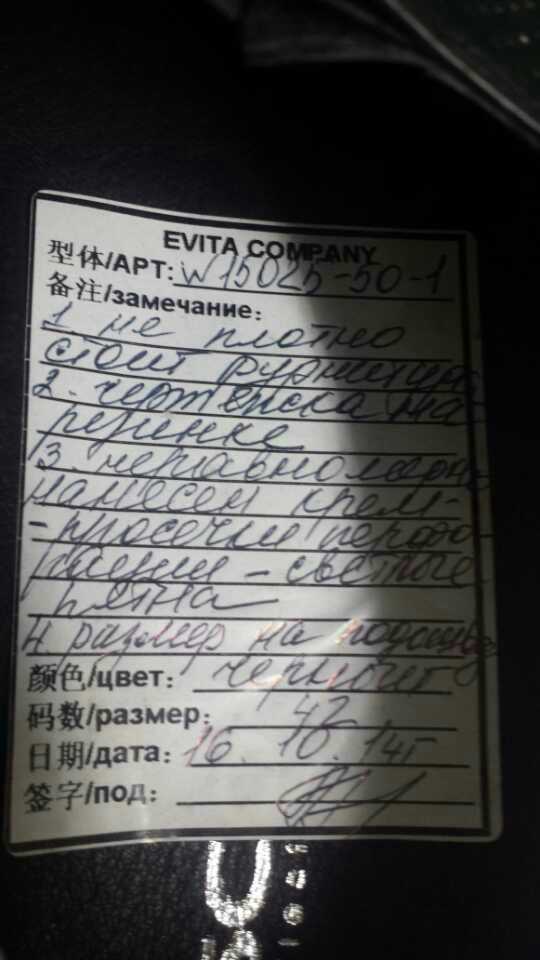 EVITA COMPANY
型体/АРТ: W15025-50-1
备注/замечание:
1. не плотно
стоит фурнитура
2. на
резинке
3. неравномерно
нанесен крем-
-просечки перфо-
рации - светлые
пятна
4. размер на подошве
颜色/цвет: черный
码数/размер: 42
日期/дата: 16.10.14г
签字/под: